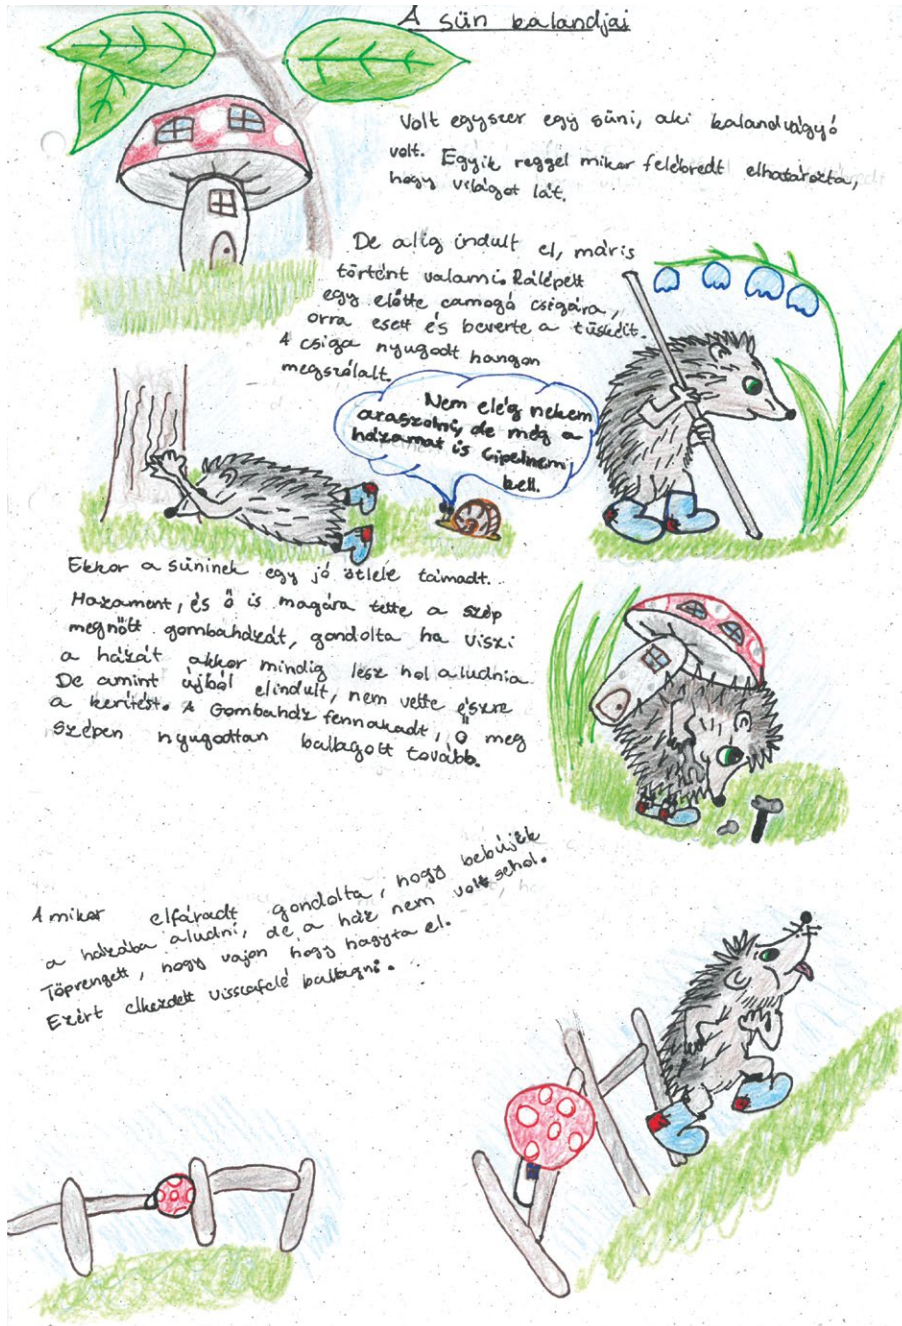 A sün kalandjai
Volt egyszer egy süni, aki kalandvágyó
volt. Egyik reggel mikor felébredt elhatározta,
hogy világot lát.
De alig indult el, máris
történt valami. Rálépett
egy előtte camogó csigára,
orra esett és beverte a tüskéit.
A csiga nyugodt hangon
megszólalt.
Nem elég nekem
araszolni, de még a
házamat is cipelnem
kell.
Ekkor a süninek egy jó ötlete támadt.
Hazament, és ő is magára tette a szép
megnőtt gombaházát, gondolta ha viszi
a házát akkor mindig lesz hol aludnia
De amint újból elindult, nem vette észre
a kerítést. A Gombaház fennakadt, ő meg
szépen nyugodtan ballagott tovább.
Amikor elfáradt gondolta, hogy bebújik
a házába aludni, de a ház nem volt sehol.
Töprengett, hogy vajon hogy hagyta el.
Ezért elkezdett visszafelé ballagni.